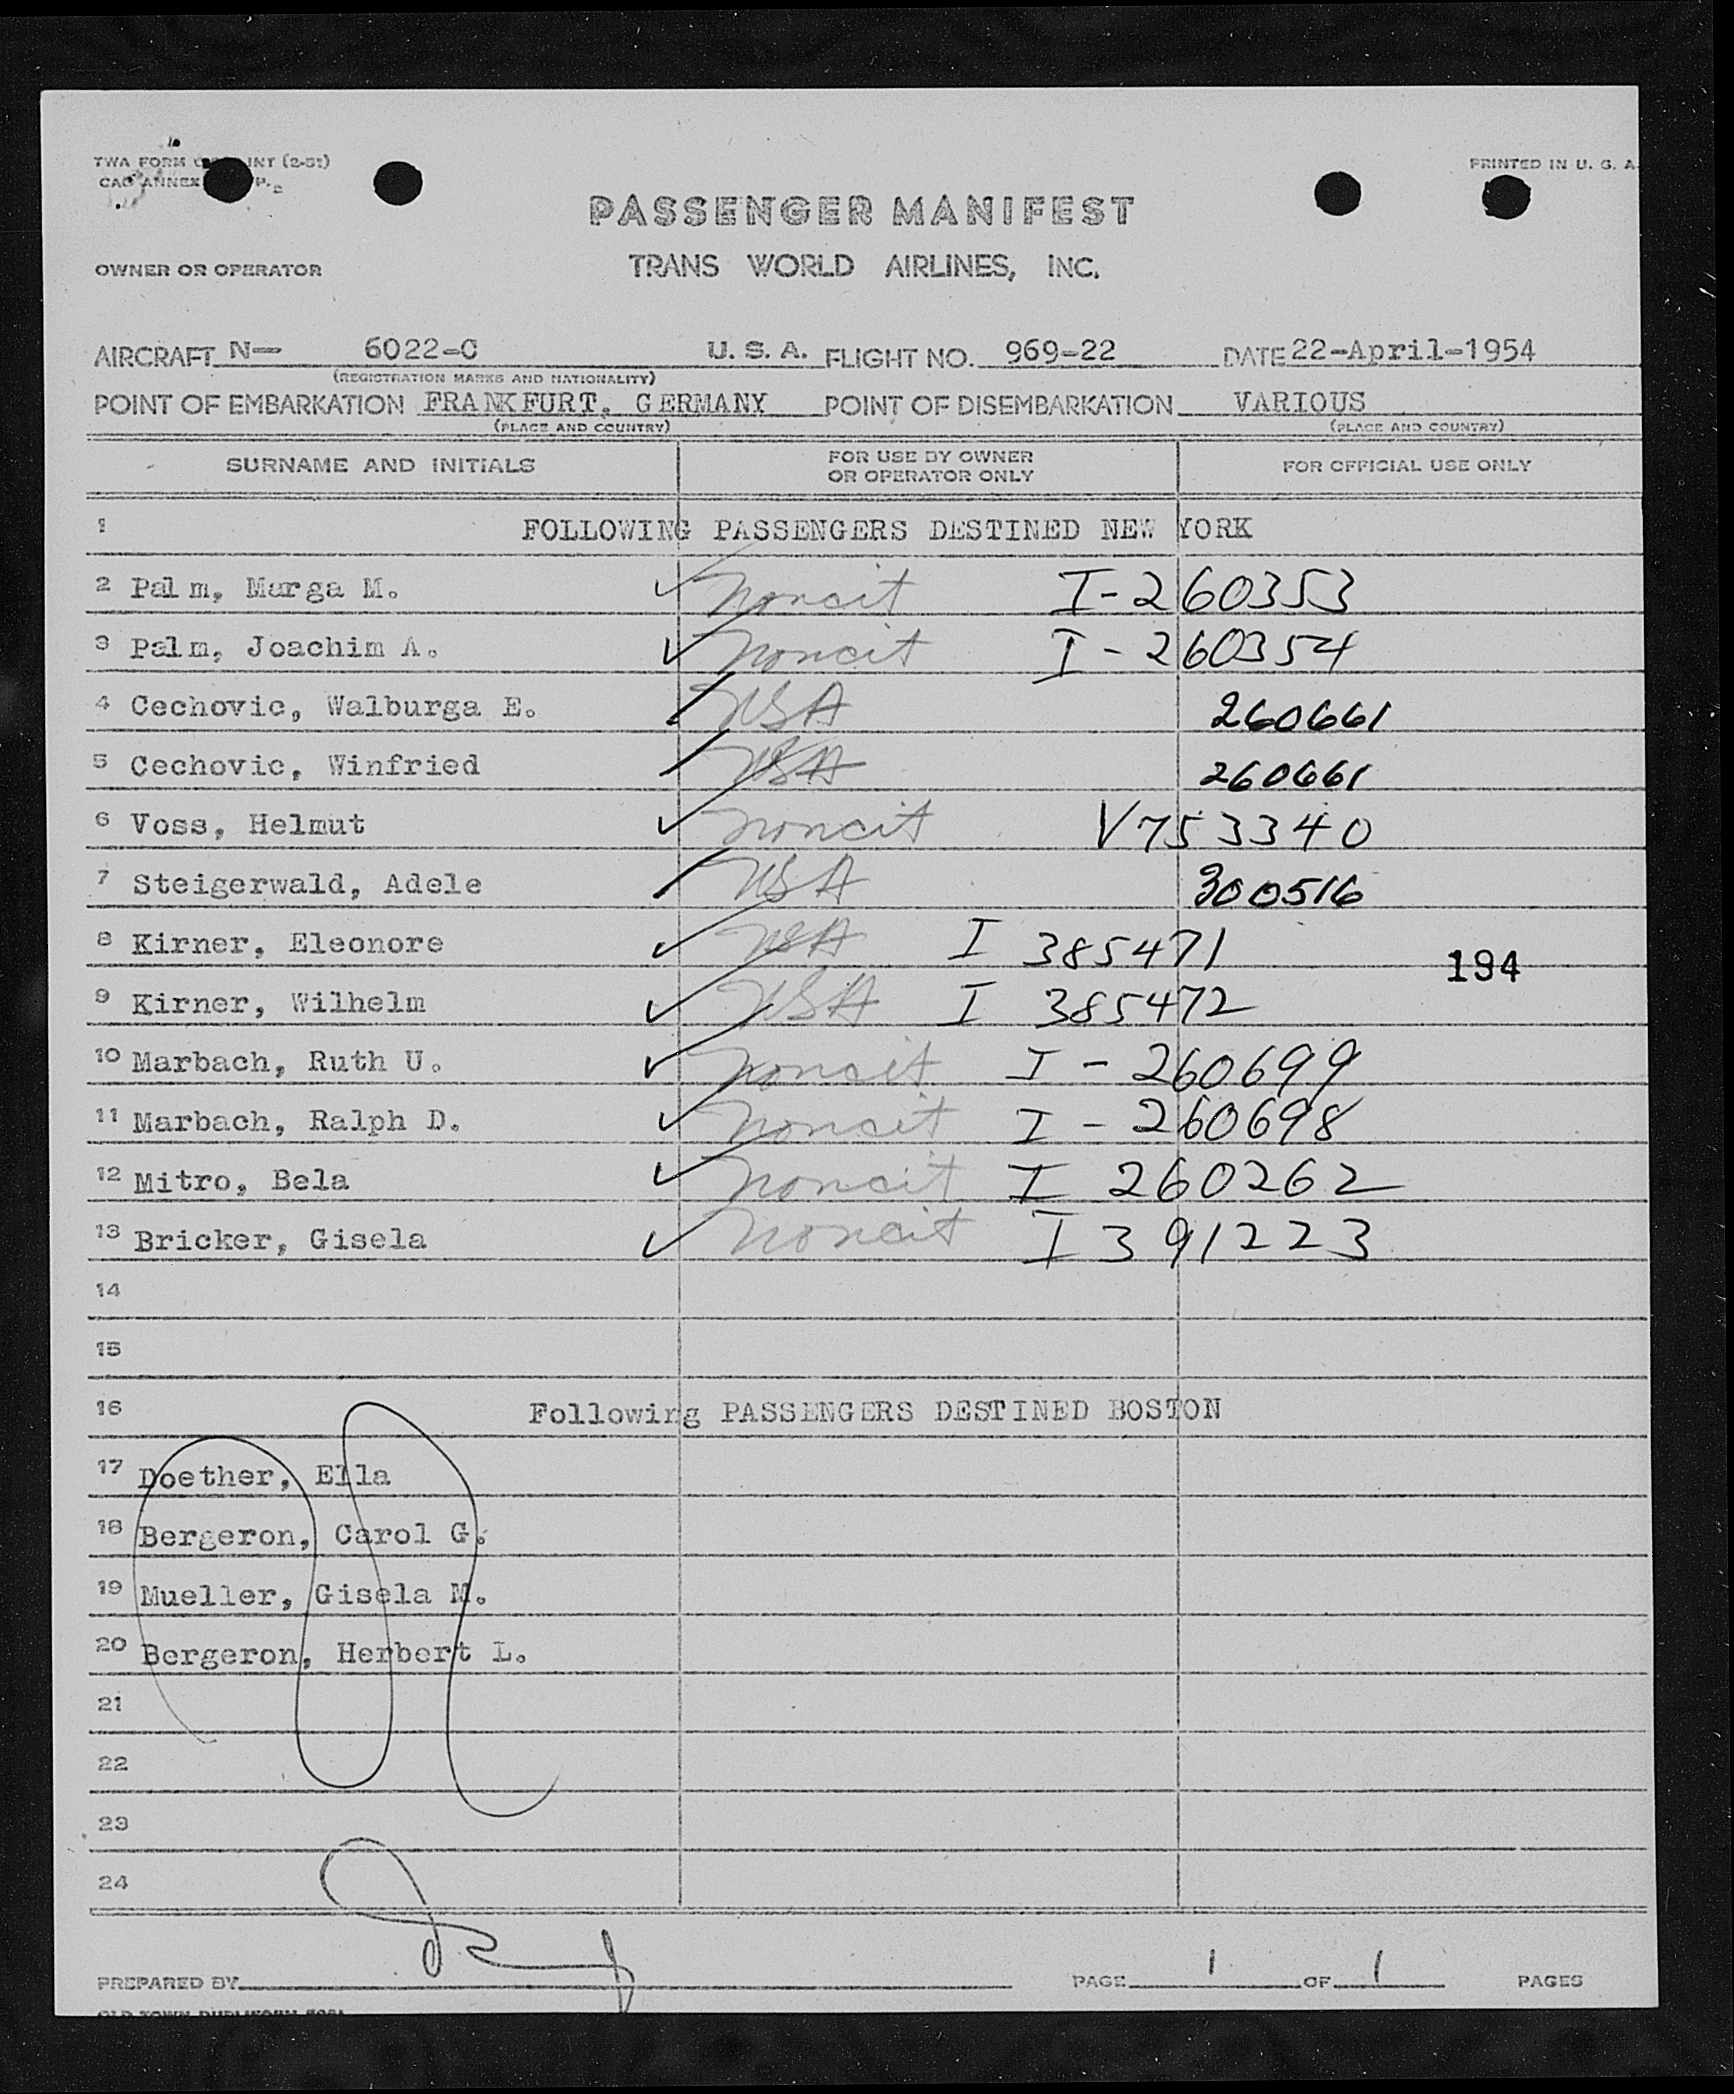 TWA FORM INT (2-51)
PRINTED IN U. S. A.
CAO ANNEX P. 2
PASSENGER MANIFEST
OWNER OR OPERATOR TRANS WORLD AIRLINES, INC.
AIRCRAFT N- 6022-C U. S. A. FLIGHT NO. 969-22 DATE 22-April-1954
(REGISTRATION MARKS AND NATIONALITY)
POINT OF EMBARKATION FRANKFURT, GERMANY POINT OF DISEMBARKATION VARIOUS
(PLACE AND COUNTRY) (PLACE AND COUNTRY)
SURNAME AND INITIALS FOR USE BY OWNER OR OPERATOR ONLY FOR OFFICIAL USE ONLY
1 FOLLOWING PASSENGERS DESTINED NEW YORK
2 Palm, Marga M. ✓ Noncit I-260353
3 Palm, Joachim A. ✓ Noncit I-260354
4 Cechovic, Walburga E. USA 260661
5 Cechovic, Winfried USA 260661
6 Voss, Helmut ✓ Noncit V753340
7 Steigerwald, Adele USA 300516
8 Kirner, Eleonore ✓ USA I 385471
194
9 Kirner, Wilhelm ✓ USA I 385472
10 Marbach, Ruth U. ✓ Noncit I-260699
11 Marbach, Ralph D. ✓ Noncit I-260698
12 Mitro, Bela ✓ Noncit I 260262
13 Bricker, Gisela ✓ Noncit I 391223
14
15
16 Following PASSENGERS DESTINED BOSTON
17 Doether, Ella
18 Bergeron, Carol G.
19 Mueller, Gisela M.
20 Bergeron, Herbert L.
21
22
23
24
PREPARED BY PAGE 1 OF 1 PAGES
OLD TOWN